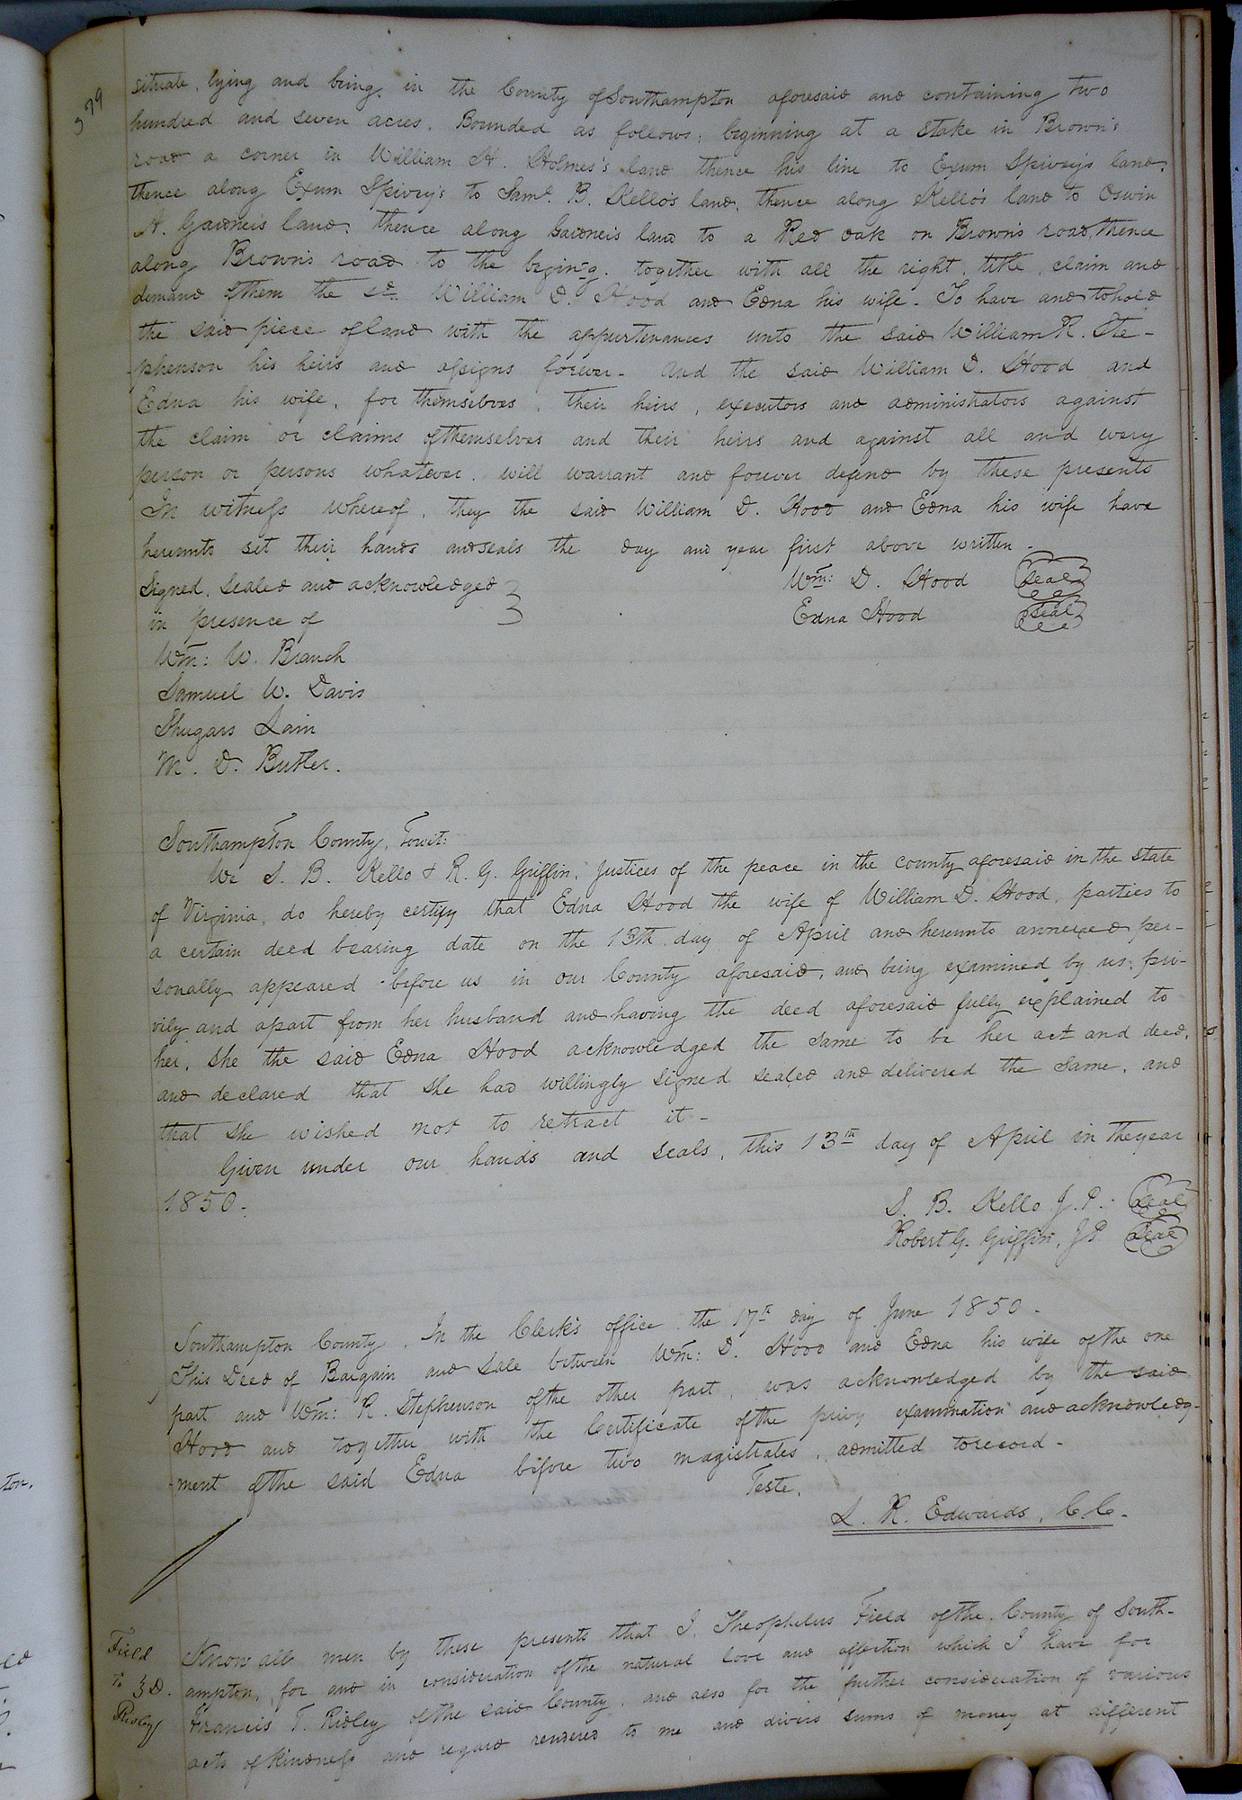 379
situate, lying and being, in the County of Southampton aforesaid and containing two
hundred and seven acres. Bounded as follows; beginning at a stake in Brown's
road a corner in William H. Holmes's land thence his line to Exum Spivey's land;
thence along Exum Spivey's to Saml. B. Kello's land, thence along Kello's land to Oswin
A. Gardner's land; thence along Gardner's land to a Red oak on Brown's road, thence
along Brown's road to the begin'g. together with all the right, title, claim and
demand of them the sd. William D. Hood and Edna his wife. To have and to hold
the said piece of land with the appurtenances unto the said William R. Ste-
phenson his heirs and assigns forever. And the said William D. Hood and
Edna his wife, for themselves, their heirs, executors and administrators against
the claim or claims of themselves and their heirs and against all and every
person or persons whatever, will warrant and forever defend by these presents
In witness whereof, they the said William D. Hood and Edna his wife have
hereunto set their hands and seals the day and year first above written.
Signed, Sealed and acknowledged Wm: D. Hood Seal
in presence of Edna Hood Seal
Wm: W. Branch
Samuel W. Davis
Shugars Lain
M. D. Butler.
Southampton County, Towit:
We S. B. Kello & R. G. Griffin, Justices of the peace in the county aforesaid in the State
of Virginia, do hereby certify that Edna Hood the wife of William D. Hood, parties to
a certain deed bearing date on the 13th day of April and hereunto annexed per-
sonally appeared before us in our County aforesaid, and being examined by us, pri-
vily and apart from her husband and having the deed aforesaid fully explained to
her, she the said Edna Hood acknowledged the same to be her act and deed,
and declared that she had willingly signed sealed and delivered the same, and
that she wished not to retract it -
Given under our hands and seals, this 13th day of April in the year
1850. S. B. Kello J. P. Seal
Robert G. Griffin, J P. Seal
Southampton County, In the Clerk's office the 17th day of June 1850.
This Deed of Bargain and Sale between Wm: D. Hood and Edna his wife of the one
part and Wm: R. Stephenson of the other part, was acknowledged by the said
Hood and together with the Certificate of the privy examination and acknowledg-
ment of the said Edna before two magistrates, admitted to record.
Teste,
L. R. Edwards, C. C.
Field
to } D.
Ridley
Know all men by these presents that I, Theophelus Field of the County of South-
ampton, for and in consideration of the natural love and affection which I have for
Francis T. Ridley of the said County, and also for the further consideration of various
acts of kindness and regard rendered to me and divers sums of money at different